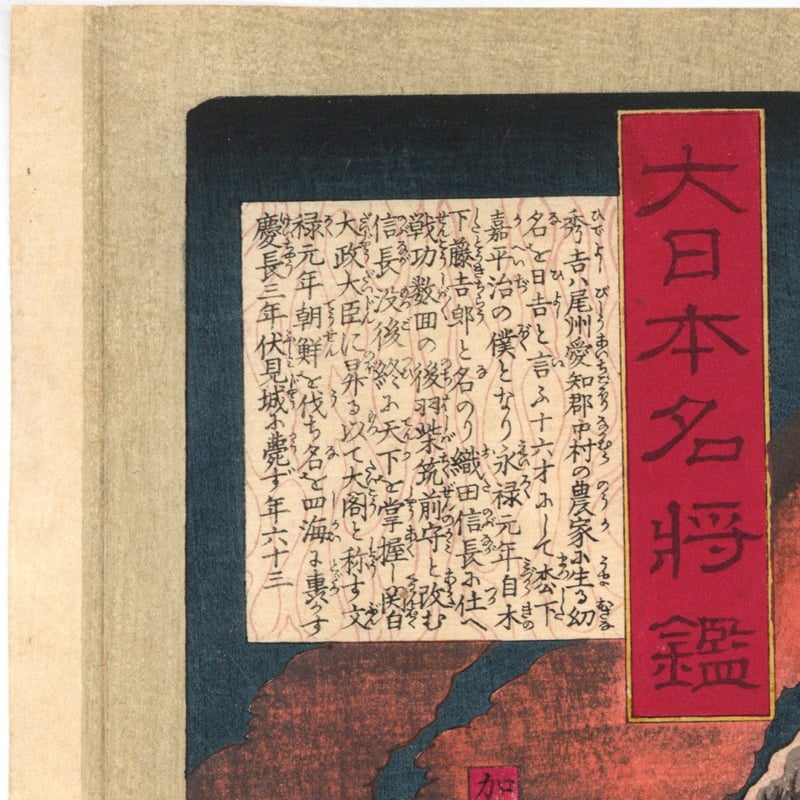 大日本名将鑑
秀吉ハ尾州愛知郡中村の農家に生る幼
名を日吉と言ふ十六才にして松下
嘉平治の僕となり永禄元年自木
下藤吉郎と名のり織田信長に仕へ
戦功数回の後羽柴筑前守と改む
信長没後終に天下を掌握し関白
大政大臣に昇る以て大閤と称す文
禄元年朝鮮を伐ち名を四海に轟かす
慶長三年伏見城に薨ず年六十三
加